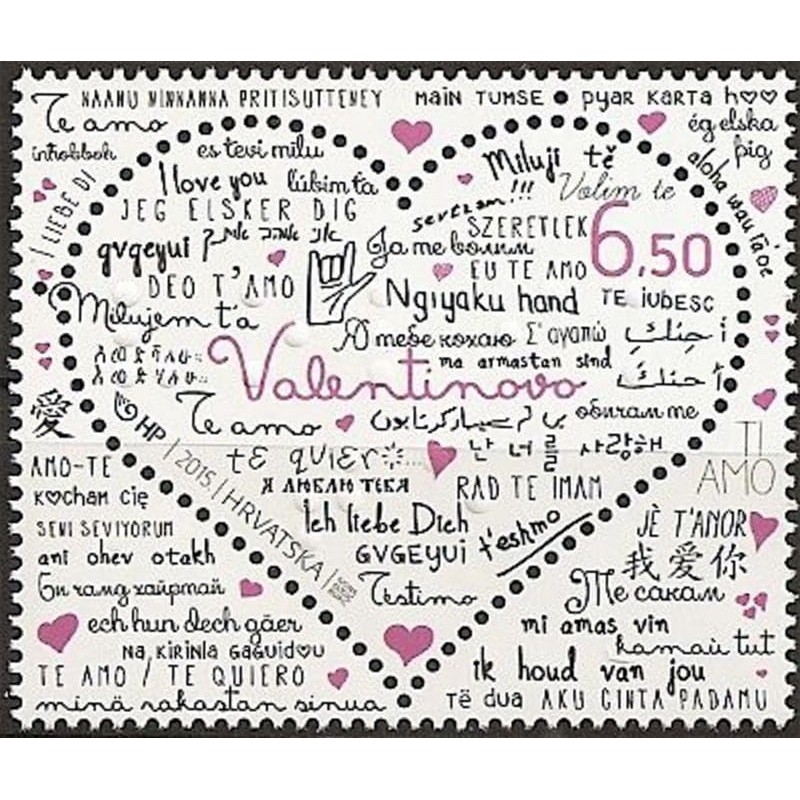 NAANU NINNANNA PRITISUTTENEY
main TUMSE • pyar KARTA h♡♡
Te amo
ég elska
þig
inhobbok
es tevi mīlu
Miluji tě
aloha wau iā 'oe
I LIEBE DI
I love you
ľúbim ťa
Volim te
JEG ELSKER DIG
sevezam!!!
SZERETLEK
6,50
gvgeyui
Ja те волим
DEO T'AMO
EU TE AMO
Ngiyaku hand
TE IUBESC
Milujem ťa
Я тебе кохаю
Σ'αγαπώ
أحبك
ma armastan sind
أحبك
Valentinovo
愛
HP | 2015. | HRVATSKA |
Te amo
обичам те
TI
AMO
AMO-TE
tE QUIERO
난 너를 사랑해
kocham cię
Я ЛЮБЛЮ ТЕБЯ
RAD TE IMAM
SENI SEVIYORUM
Ich liebe Dich
JÈ T'ANOR
ani ohev otakh
GVGEYUI
t'eshmo
我爱你
Би чамд хайртай
Testimo
Те сакам
ech hun dech gäer
mi amas vin
NA KIRINLA GAGUIDOU
kamaù tut
TE AMO / TE QUIERO
ik houd van jou
minä rakastan sinua
Të dua
AKU CINTA PADAMU